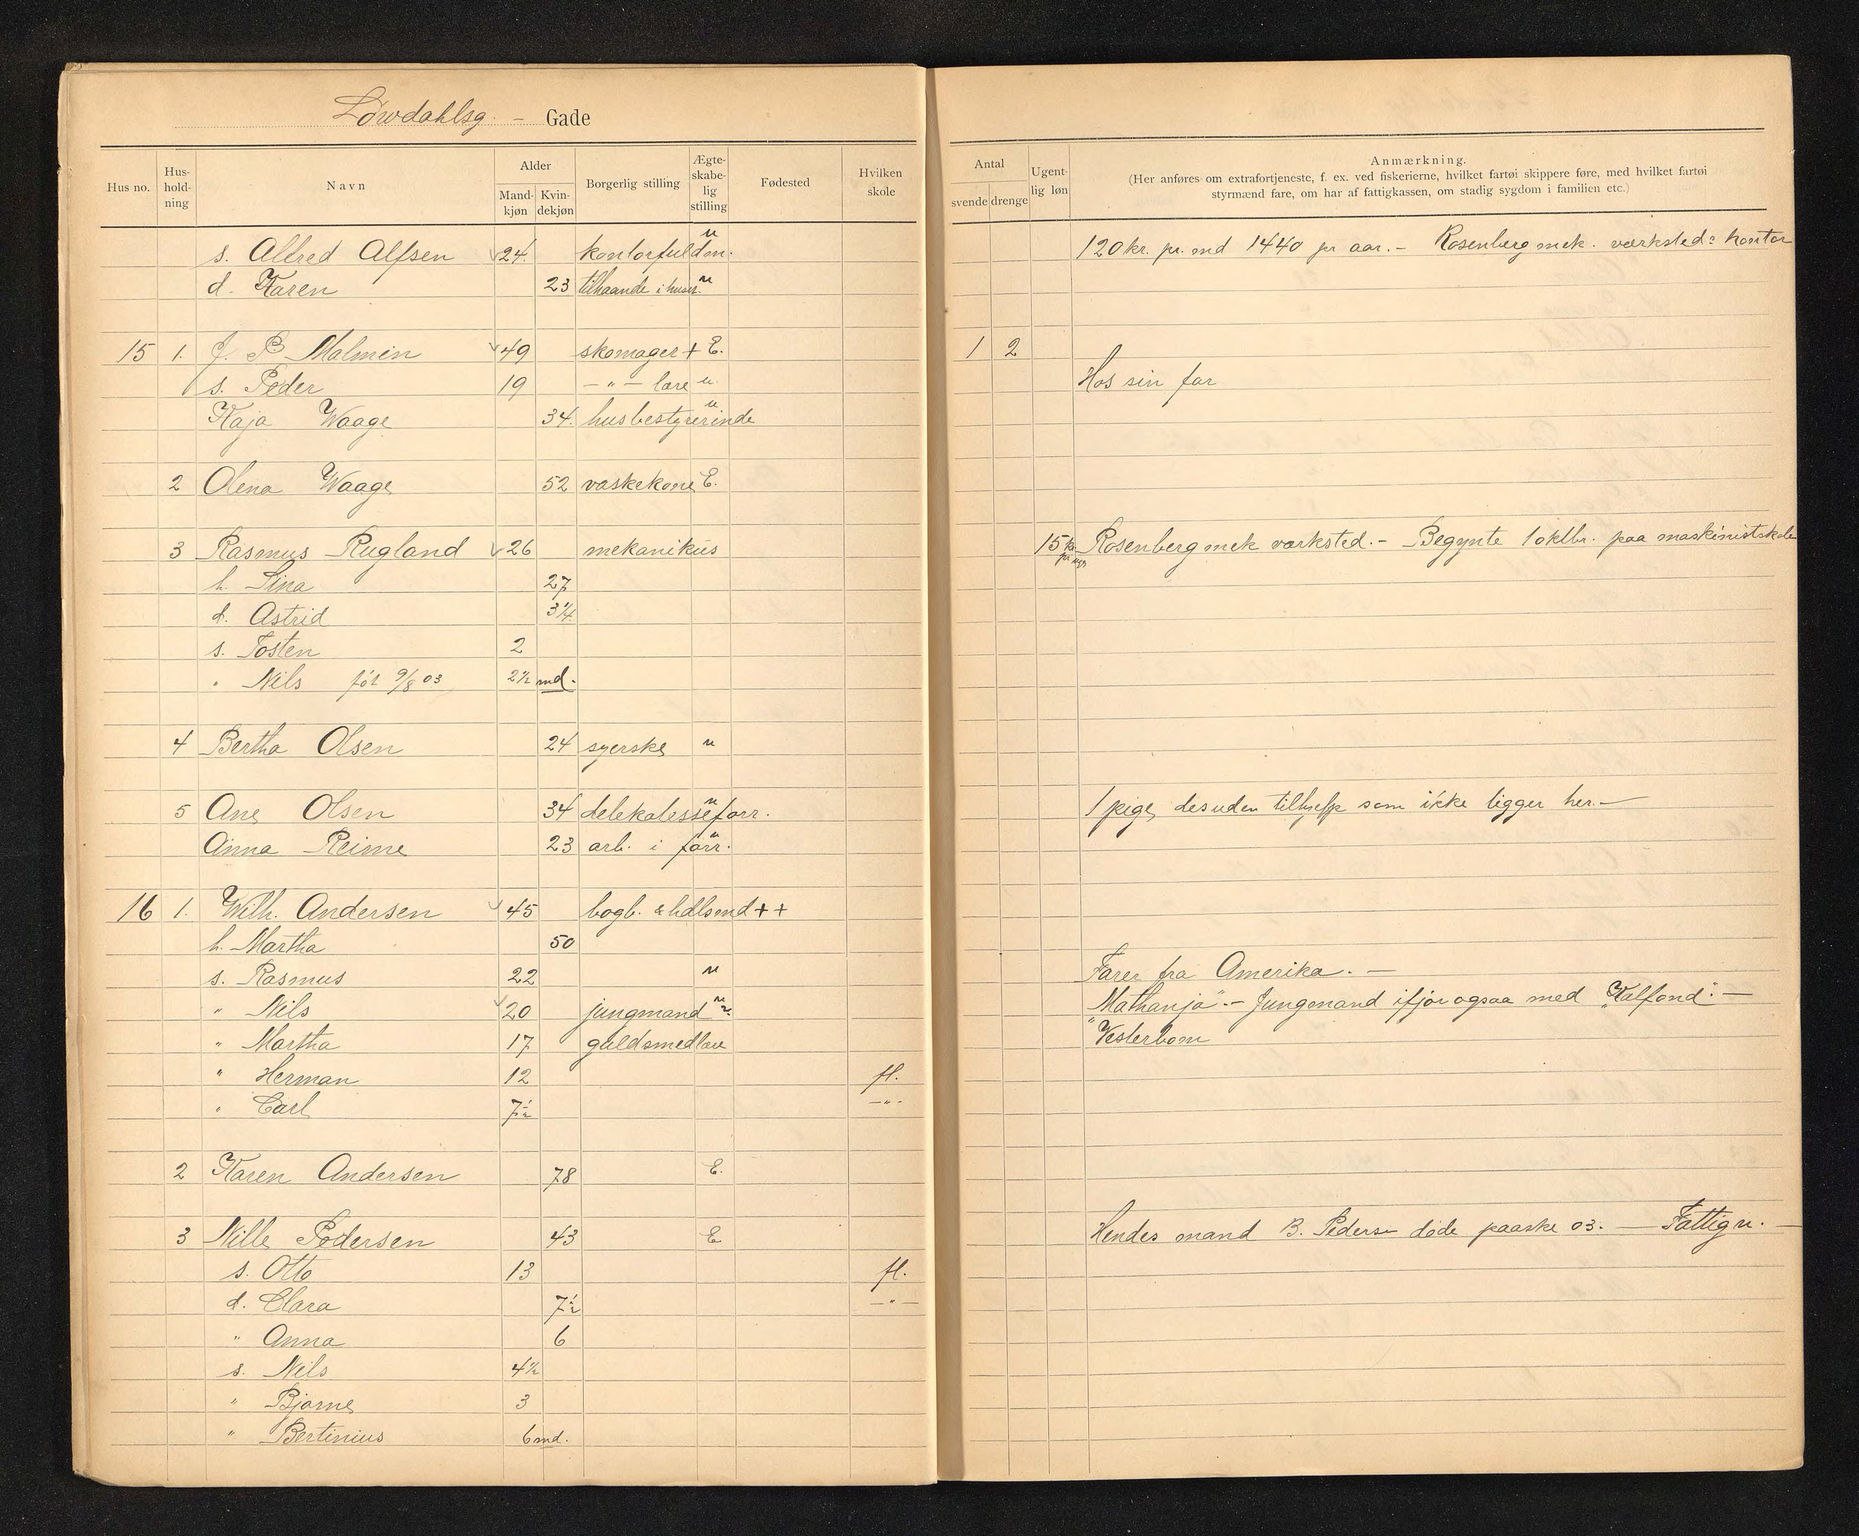 Løwdahlsg. - Gade
Hus no. Hus-hold-ning Navn Alder Mand-kjøn Kvin-dekjøn Borgerlig stilling Ægte-skabe-lig stilling Fødested Hvilken skole Antal svende drenge Ugent-lig løn Anmærkning.
(Her anføres om extrafortjeneste, f. ex. ved fiskerierne, hvilket fartøi skippere føre, med hvilket fartøi
styrmænd fare, om har af fattigkassen, om stadig sygdom i familien etc.)
s. Alfred Alfsen 24. kontorfuldm. u 120 kr. pr. md 1440 pr aar. - Rosenberg mek. værksted: kontor
d. Karen 23 tilhaande i huset. u
15 1. J. P Malmin 49 skomager + E. 1 2
s. Peder 19 - " - lære u. Hos sin far
Kaja Waage 34. husbestyrerinde u
2 Olena Waage 52 vaskekone E.
3 Rasmus Rugland 26 mekanikus 15 kr. pr. uge Rosenberg mek værksted. - Begynte 1 oktbr. paa maskinistskole
h. Lina 27
d. Astrid 3 1/4
s. Tosten 2
" Nils fór 9/8 03 2 1/2 md.
4 Bertha Olsen 24 syerske u
5 Ane Olsen 34 delekatesseforr. u 1 pige, desuden tilhjelp som ikke ligger her. -
Anna Reime 23 arb. i forr. u
16 1. Wilh. Andersen 45 bogb. & hdlsmd ++
h. Martha 50
s. Rasmus 22 u Farer fra Amerika. -
" Nils 20 jungmand u "Mathanja" - Jungmand ifjor ogsaa med "Kalfond". -
" Martha 17 guldsmedlære u. Vesterbom
" Herman 12 fl.
" Carl 7 1/2 - " -
2 Karen Andersen 78 E.
3 Nille Pedersen 43 E Hendes mand B. Pedersen døde paaske 03. - Fattigv. -
s. Otto 13 fl.
d. Clara 7 1/2 - " -
" Anna 6
s. Nils 4 1/2
" Bjarne 3
" Bertinius 6 md.